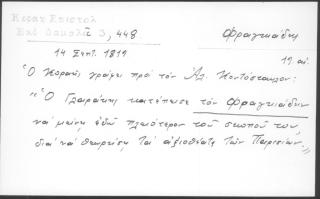 Κοραη Επιστολ
Εκδ Δαμαλᾶ 3, 448
Φραγκιάδης
14 Σεπτ. 1819
19 αἰ.
"Ὁ Κοραῆς γράφει πρὸ τὸν Ἀλ. Κοντόσταυλον:
"Ὁ Γλαράκης κατέπεισε τὸν Φραγκιάδην
νὰ μείνῃ ἐδῶ πλειότερον τοῦ σκοποῦ του,
διὰ νὰ θεωρήσῃ τὰ ἀξιοθέατα τῶν Παρισίων."